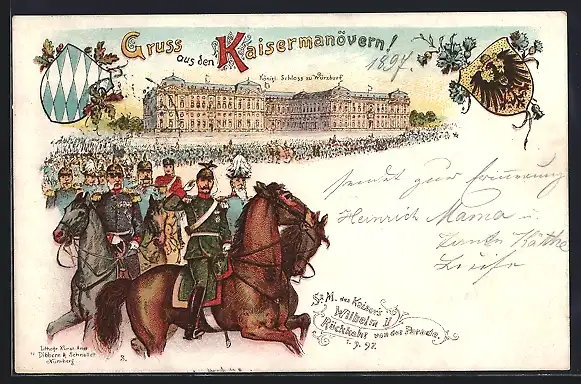 Gruss
aus den Kaisermanövern!
1897.
Königl. Schloss zu Würzburg.
sendet zur Erinnerung
Heinrich Mama u.
Tante Käthe
Luise
S. M. des Kaiser's
Wilhelm II
Rückkehr von der Parade.
1. 9. 97.
Lithogr. Kunst Anst.
v. Dibbern & Schnaller
Nürnberg
2.